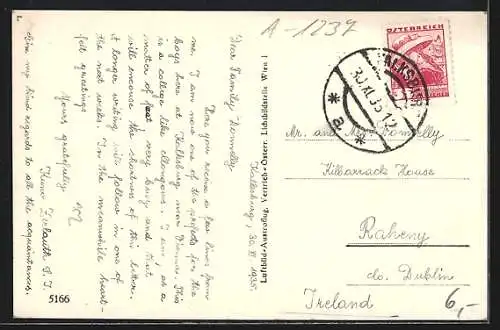 A-1237
Kalksburg, 30. XI 1935.
Dear Family Donnelly
Here you receive a few lines from
me. I am now one of the prefects for the
boys here at Kalksburg near Vienna. This
is a college like Clongowes. I am, as a
matter of fact very busy and that
will excuse the shortness of this letter.
A longer writing will follow in one of
the next weeks. In the meanwhile heart-
felt greetings
Yours gratefully
in X
S. J.
Give my kind regards to all the acquaintances.
5166
Luftbild-Austroflug, Vertrieb-Österr. Lichtbildstelle Wien I
ÖSTERREICH
KALKSBURG
30.XI.35 12
* a *
Mr. and Mrs. Donnelly
Killarrack House
Raheny
Co. Dublin
Ireland
6,-